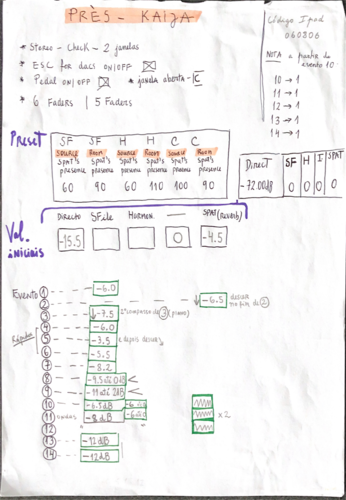 PRÈS - KAIJA
Código Ipad
060806
* Stereo - Check - 2 janelas
* ESC for dacs on/off
* Pedal on/off * janela aberta - C
* 6 Faders | 5 Faders
NOTA a partir do
evento 10
10 → 1
11 → 1
12 → 1
13 → 1
14 → 1
Preset
SF SF H H C C
SOURCE ROOM SOURCE ROOM SOURCE ROOM
spat's spat's spat's spat's spat's spat's
presence presence presence presence presence presence
60 90 60 110 100 90
Direct SF H I SPAT
-72.00dB 0 0 0 0
Vol.
iniciais
Directo SFile Harmon. — SPAT (Reverb)
-15.5 0 -4.5
Evento 1 -6.0
2 -6.5 descer no fim do 2
3 -7.5 1º compasso do 3 (piano)
4 -6.0
5 -7.5 e depois descer
6 -5.5
7 -8.2
8 -9.5 até 0dB
9 -11 até 2dB
10 -6.5dB -6.0
11 ondas -8dB -6.0
12
x 2
13 -12dB
14 -12dB